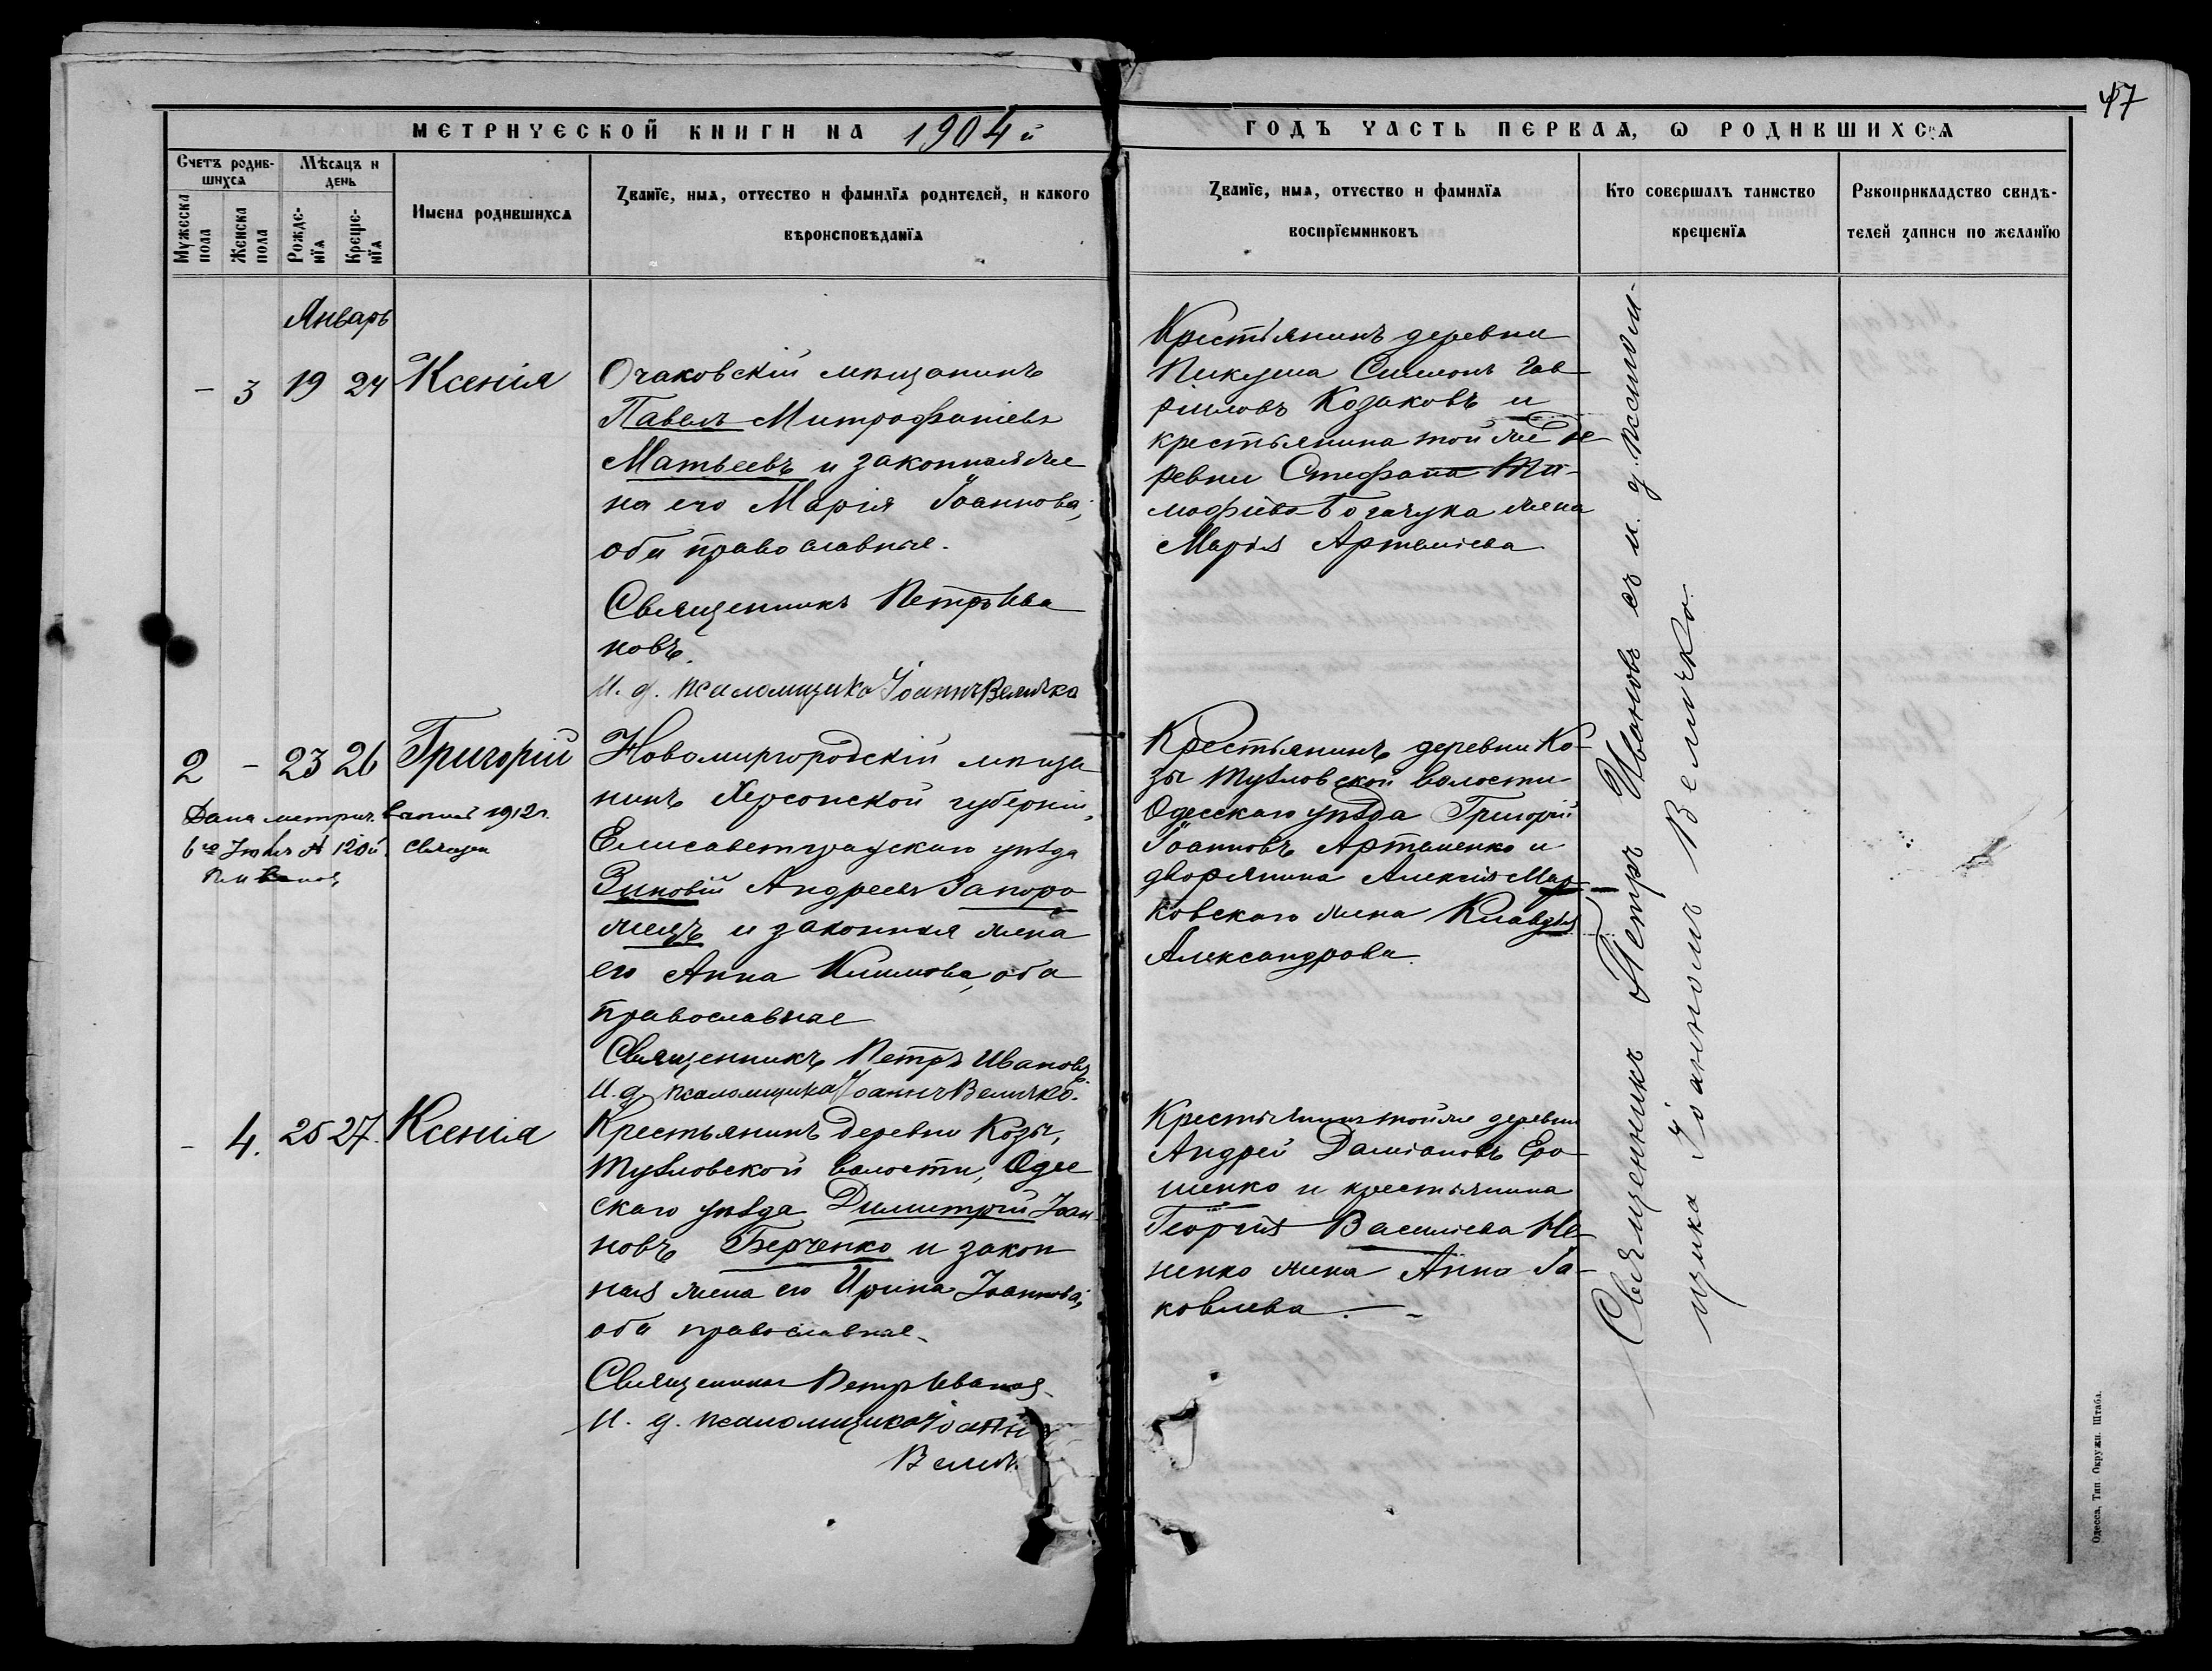 47
МЕТРИЧЕСКОЙ КНИГИ НА 1904 й
ГОДЪ ЧАСТЬ ПЕРВАЯ, Ѡ РОДИВШИХСЯ
Счетъ родив-
шихся
Мѣсяцъ и
день
Мужеска
пола
Женска
пола
Рожде-
нїя
Креще-
нїя
Имена родившихся
Званїе, имя, отчество и фамилїя родителей, и какого
вѣроисповѣданїя
Званїе, имя, отчество и фамилїя
воспрїемниковъ
Кто совершалъ таинство
крещенїя
Рукоприкладство свидѣ-
телей записи по желанїю
Январь
- 3 19 24 Ксенія
Очаковскій мѣщанинъ
Павелъ Митрофаніевъ
Матвеевъ и законная же
на его Марія Іоаннова,
оба православные.
Священникъ Петръ Ива
новъ.
И. д. псаломщика Іоаннъ Величко
Крестьянинъ деревни
Симеонъ Гав
риловъ Козаковъ и
крестьянина той же де
ревни Стефана Ти-
мофиева Богачука жена
Марія Артеміева
2 - 23 26 Григорій
Дана метрич. 1912 г.
6го Іюля № 120й. Священ
П. Иванов
Новомиргородскій мѣща
нинъ Херсонской губерніи,
Елисаветградскаго уѣзда
Зиновій Андреевъ Запоро
жецъ и законная жена
его Анна Климова, оба
православные
Священникъ Петръ Ивановъ
И. д. псаломщика Іоаннъ Величко.
Крестьянинъ деревни Ко-
зы Тузловской волости
Одесскаго уѣзда Григорій
Іоанновъ Артеменко и
дворянина Алексія Мар-
ковскаго жена Клавдія
Александрова.
- 4. 25 27. Ксенія
Крестьянинъ деревни Козы,
Тузловской волости, Одес
скаго уѣзда Димитрій Іоан
новъ Берченко и закон
ная жена его Ирина Іоаннова,
оба православные.
Священникъ Петр Иванов
И. д. псаломщика Іоаннъ
Велич
Крестьянинъ той же деревни
Андрей Даміановъ Еро
шенко и крестьянина
Георгія Василіева Не
ненко жена Анна Іа-
ковлева.
Священникъ Петръ Ивановъ съ и. д. псалом-
щика Іоанномъ Величко.
Одесса, Тип. Окружн. Штаба.